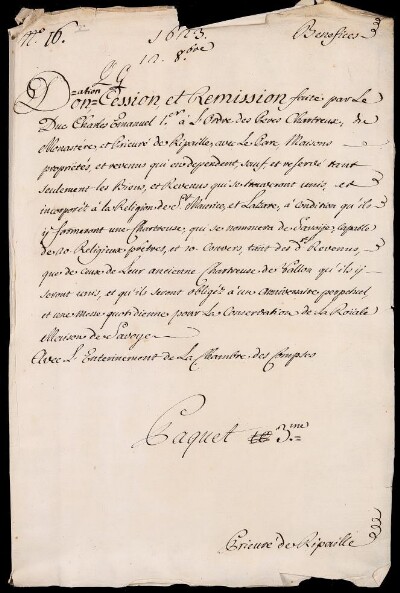 N.º 16. 1623. Benefices
12. 8.bre
Donation Cession et Remission faite par Le
Duc Charles Emanuel 1.er à L'Ordre des Peres Chartreux, du
Monastere, et Prieuré de Ripaille, avec Le Parc, Maisons
proprietés, et revenus qui en dependent, sauf, et reservé tant
seulement les Biens, et Revenus qui se trouveront unis, et
incorporés à la Religion de S.t Maurice, et Lazare, à Condition qu'ils
y formeront une Chartreuse, qui se nommera de Savoÿe, capable
de 20 Religieux prêtres, et 10 Convers, tant des d.s Revenus,
que de Ceux de Leur ancienne Chartreuse de Vallon qu'ils y
seront unis, et qu'ils seront obligés à un Anniversaire perpetuel
et une Messe quotidienne pour La Conservation de La Roiale
Maison de Savoye
Avec L'Enterinement de La Chambre des Comptes
Paquet 3.me
Prieuré de Ripaille